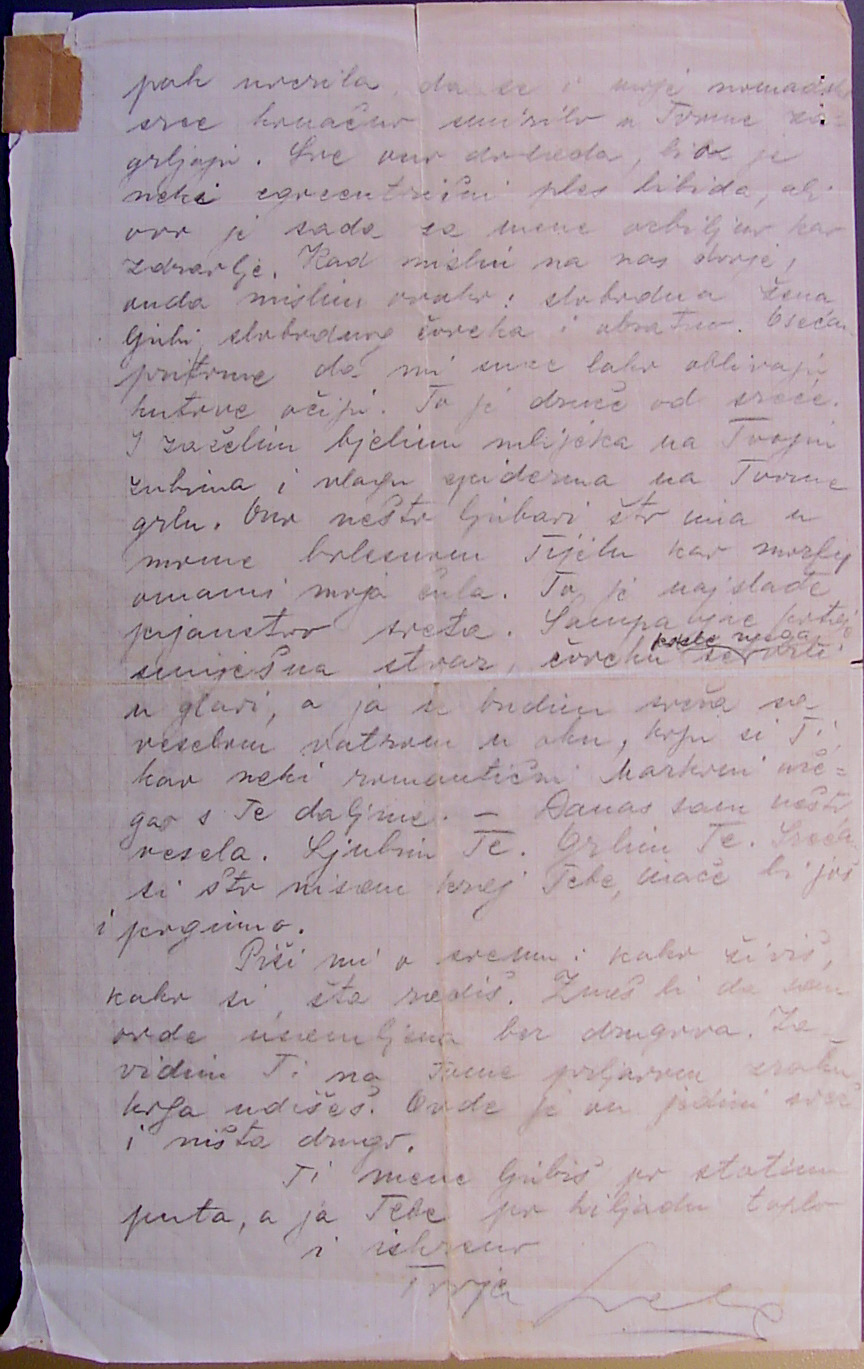 pak uverila, da se i moje nomadsko
srce konačno smirilo u Tvome za=
grljaju. Sve ono do sada, bio je
neki egocentrični ples libida, ali
ovo je sada za mene ozbiljno kao
zdravlje. Kad mislim na nas dvoje,
onda mislim ovako: slobodna žena
ljubi slobodnog čoveka i obratno. Osećam
pritome da mi suze lako oblivaju
kutove očiju. To je draže od sreće.
I zaželim bjelinu mlijeka na Tvojim
zubima i vlagu epiderma na Tvome
grlu. Ono nešto ljubavi što ima u
mome bolesnom Tijelu kao morfij
omami moja čula. To je najslađe
pijanstvo sveta. Šampanjac je
smiješna stvar, čoveku posle njega se vrti
u glavi, a ja se budim sveža sa
veselom vatrom u oku, koju si Ti
kao neki romantični Markoni
s Te daljine. – Danas sam nešto
vesela. Ljubim Te. Grlim Te. Sreća
si što nisam kraj Tebe, inače bi još
i poginuo.
Piši mi o svemu: kako živiš,
kako si, šta radiš. Znaš li da sam
ovde usamljena bez drugova. Za=
vidim Ti na tome prljavom zraku
koga udišeš. Ovde je on jedini
i ništa drugo.
Ti mene ljubiš po stotinu
puta, a ja Tebe po hiljadu toplo
i iskreno
Tvoja